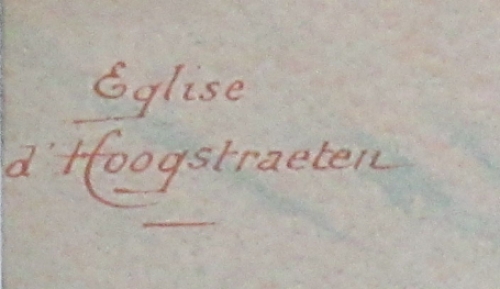 Eglise
d'Hoogstraeten